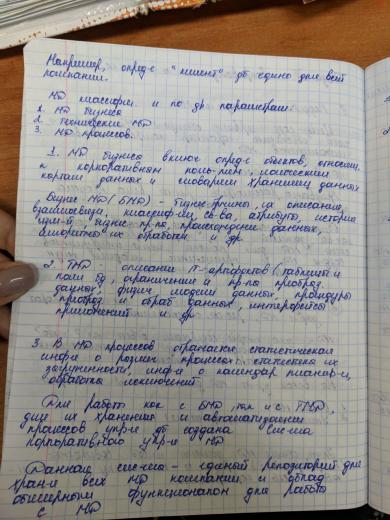 Например, опред-е "клиент" дб едино для всей
компании.
МД классифи. и по др параметрам:
1. МД бизнеса
2. технические МД
3. МД процессов.
1. МД бизнеса включ опред-е объектов, относящ.
к корпоративным поль-лям, логическим
картам данных и словарям хранилищ данных
Бизнес МД (БМД) - бизнес-термины, их описание,
взаимосвязи, классиф-ии, св-ва, атрибуты, история
бизнес пр-ла, происхождение данных,
алгоритмы их обработки и др
2. ТМД - описания IT-артефактов (таблицы и
поля бд, ограничения и пр-ла преобраз.
данных, физич модели данных, процедуры
преобраз и обраб данных, интерфейсы
приложений и др
3. В МД процессов отражается статистическая
инф-я о различ процессах статистика их
загруженности, инф-я о календар планир-и,
обработка исключений
Для работы как с БМД, так и с ТМД,
для их хранения и автоматизации
процессов упр-я дб создана сис-ма
корпоративного упр-я МД
Данная сис-ма - единый репозиторий для
хран-я всех МД компании и облад
обширным функционалом для работы
с МД